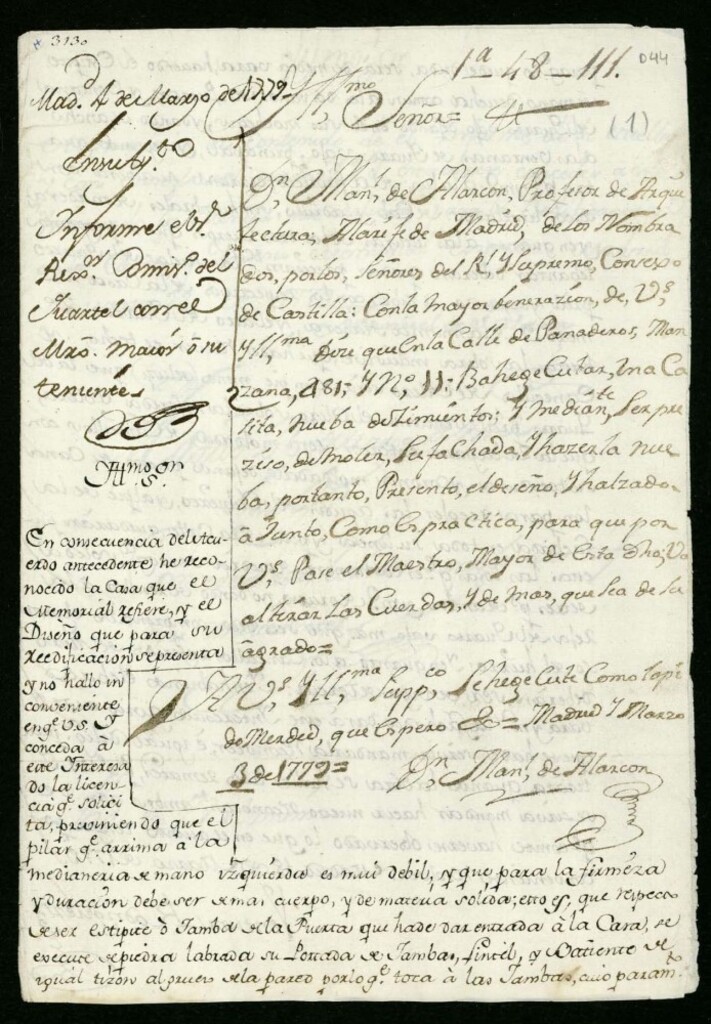 3130
1ª - 48 - 111.
044
(1)
Madᵈ 4 de Marzo de 1779
Yllᵐᵒ Señor =
En su Ayᵗᵒ
Informe el Sʳ
Rexᵒʳ Comisº del
Quartel con el
Mrô. maiòr ô su
teniente
Yllᵐᵒ Sʳ
Dⁿ Manˡ de Alarcon, Profesor de Arqui
tectura, Alarife de Madrid, de los Nombra
dos, por los, señores del Rˡ Y Supremo, Consexo
de Castilla: Con la mayor benerazion, de, V.S.
Yllᵐᵃ dize que en la Calle de Panaderos, Man
zana, 481,, Y Nº 11,, Ba hegeCutar, Una Ca
sita, nueba deSimientos; Y mediante, ser pre
ziso, demoler, su faChada, Y hazerla nue
ba, por tanto, Presento, el deseño, Y halzado
à Junto, Como es practica, para que por
V.S. Pase el Maestro, Mayor de esta dha V.
al tirar las Cuerdas, Y demas, que sea de su
agrado=
A V.S. Yllᵐᵃ suppᶜᵒ se hegeCute Como lo pi
do Merded, que espero &= Madrid Y Marzo
3 de 1779=
Dⁿ Manˡ de Alarcon
En consecuencia del Acu-
erdo antecedente he reco-
nocido la Casa que el
Memorial refiere, y el
Diseño que para su
reedificacion se presenta
y no hallo in
conveniente
en qᵉ V.S. Y
conceda à
este Interesa
do la licen
cia qᵉ solici
ta, previniendo que el
pilar qᵉ arrima à la
medianeria de mano izquierda es mui debil, y que para la firmeza
y duracion debe ser de mas cuerpo, y de materia solida; esto es, que respecto
de ser estipite ò Jamba de la Puerta que ha de dar entrada à la Casa, se
execute de piedra labrada su Portada de Jambas, lintel, y Batiente de
igual tizon al grueso de la pared por lo qᵉ toca à las Jambas, cuio paramᵗᵒ